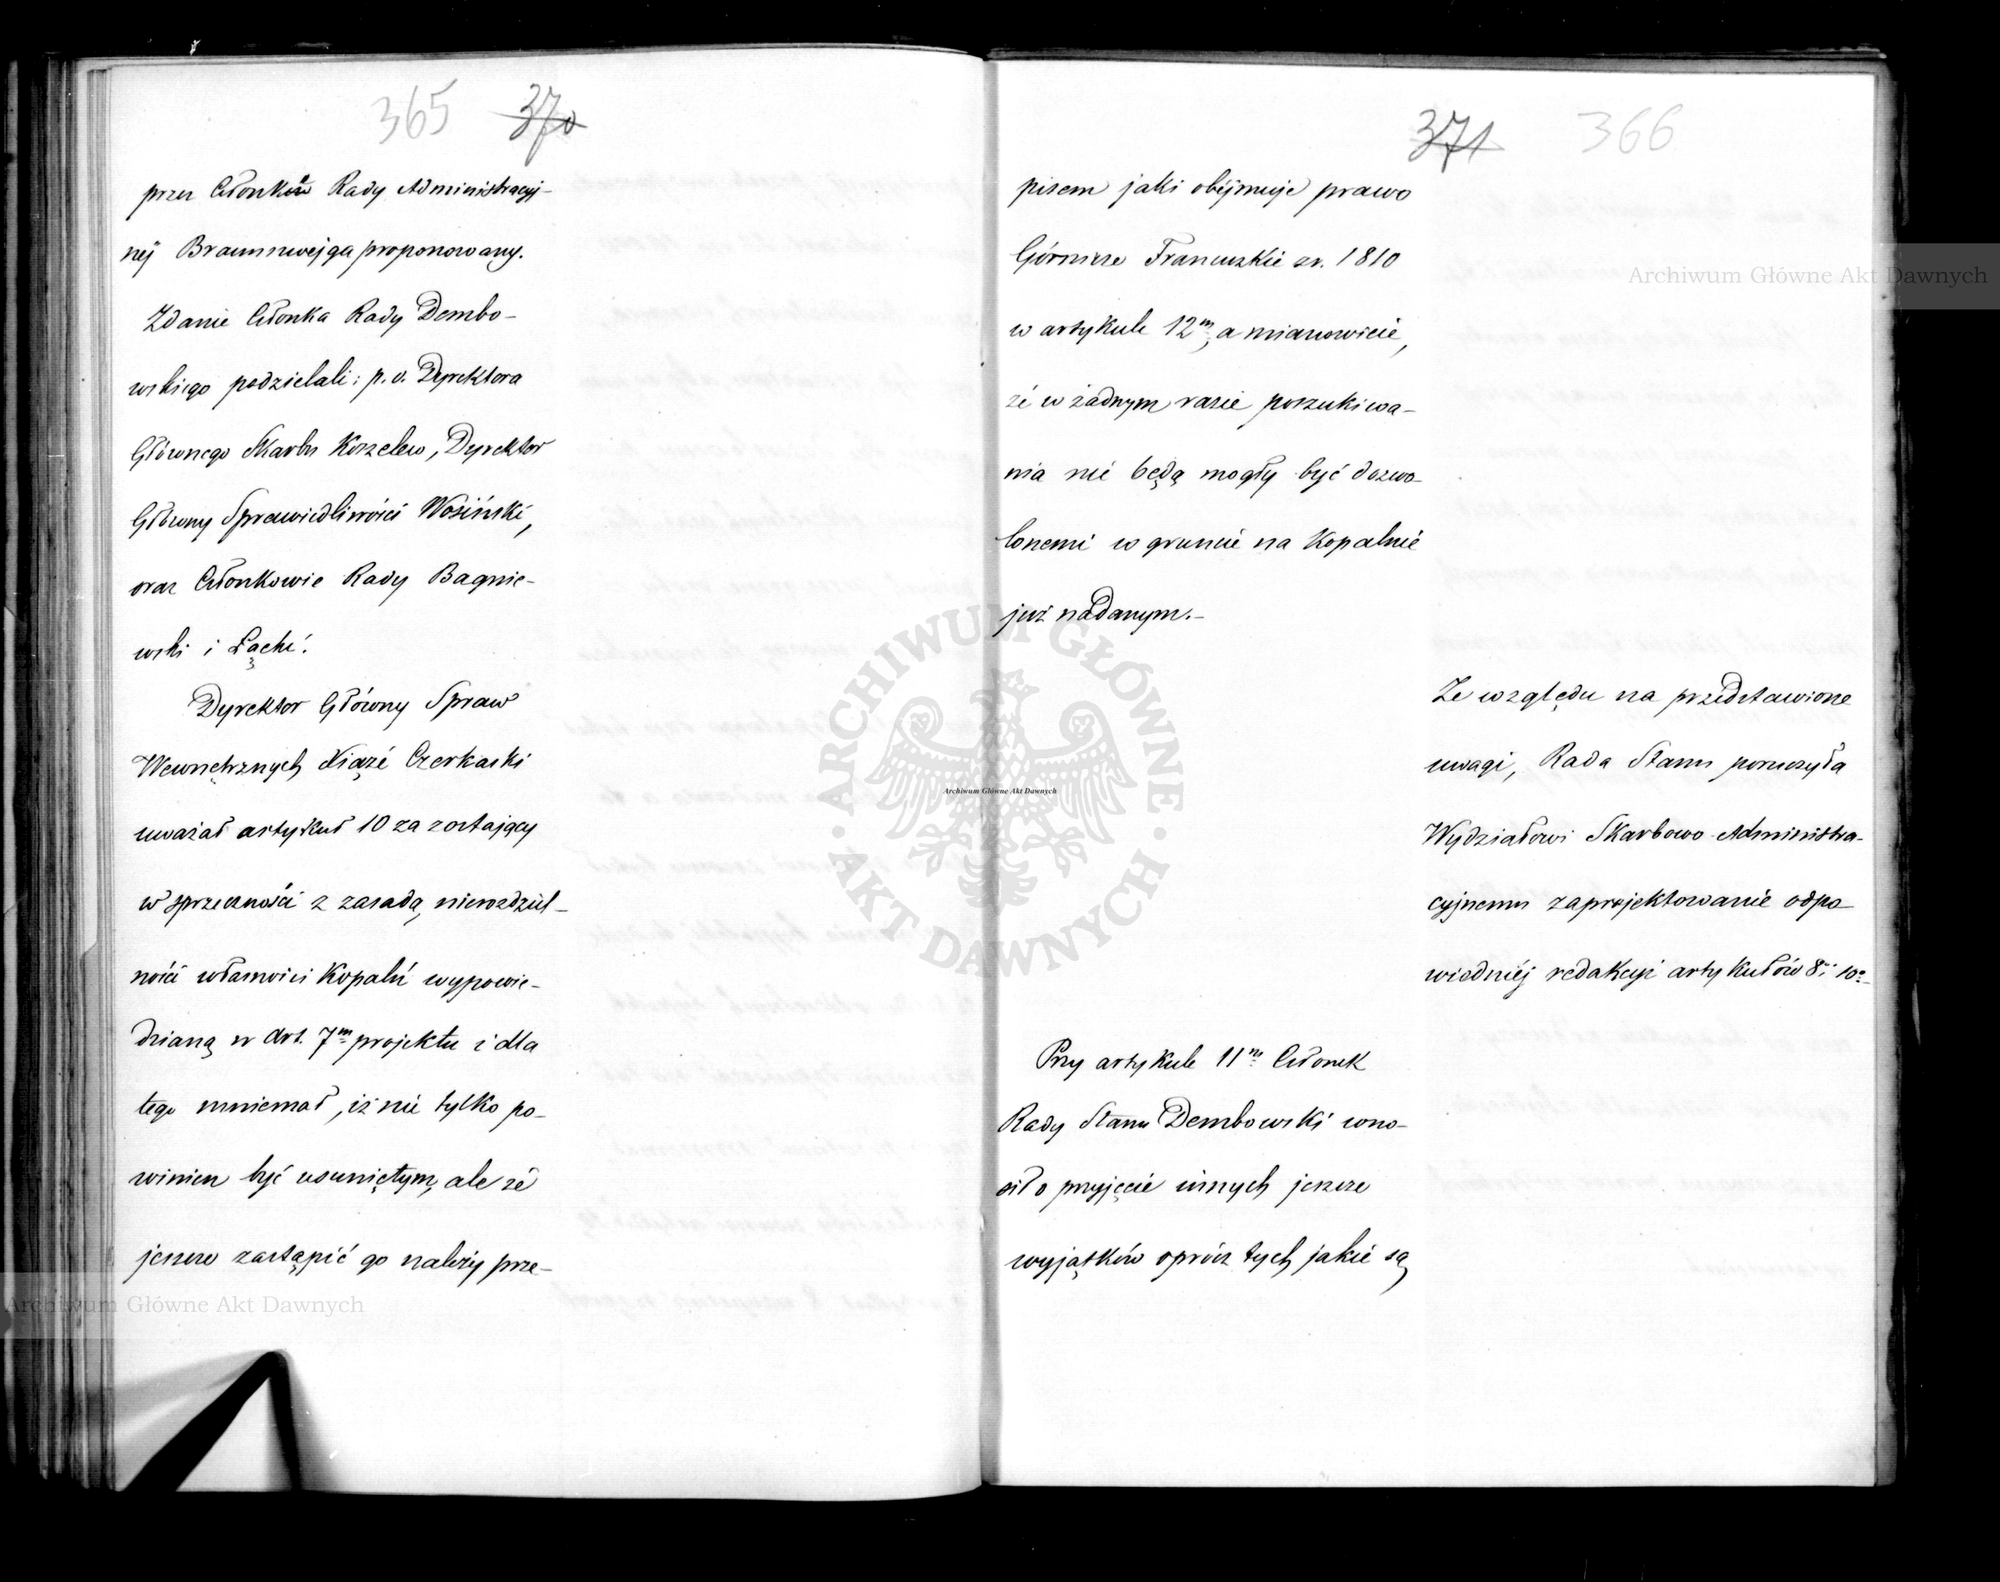 365 370
przez Członków Rady Administracyj-
nej Braunszwejga proponowany.
Zdanie Członka Rady Dembo-
wskiego podzielali: p. o. Dyrektora
Głównego Skarbu Korzelew, Dyrektor
Główny Sprawiedliwości Wosiński,
oraz Członkowie Rady Bagnie-
wski i Łącki.
Dyrektor Główny Spraw
Wewnętrznych Xiąże Czerkaski
uważał artykuł 10 za zostający
w sprzeczności z zasadą nierozdziel-
ności własności Kopalń wypowie-
dzianą w Art. 7m projektu i dla
tego mniemał, iż nie tylko po-
winien być usuniętym, ale że
jeszcze zastąpić go należy prze-
371 366
pisem jaki obejmuje prawo
Górnicze Francuzkie z r. 1810
w artykule 12m, a mianowicie,
że w żadnym razie poszukiwa-
nia nie będą mogły być dozwo-
lonemi w gruncie na Kopalnie
już nadanym.-
Ze względu na przedstawione
uwagi, Rada Stanu poruczyła
Wydziałowi Skarbowo-Administra-
cyjnemu zaprojektowanie odpo-
wiedniej redakcyi artykułów 8o i 10o
Przy artykule 11m Członek
Rady Stanu Dembowski wno-
sił o przyjęcie innych jeszcze
wyjątków oprócz tych jakie są
Archiwum Główne Akt Dawnych
Archiwum Główne Akt Dawnych
Archiwum Główne Akt Dawnych
ARCHIWUM GŁÓWNE AKT DAWNYCH